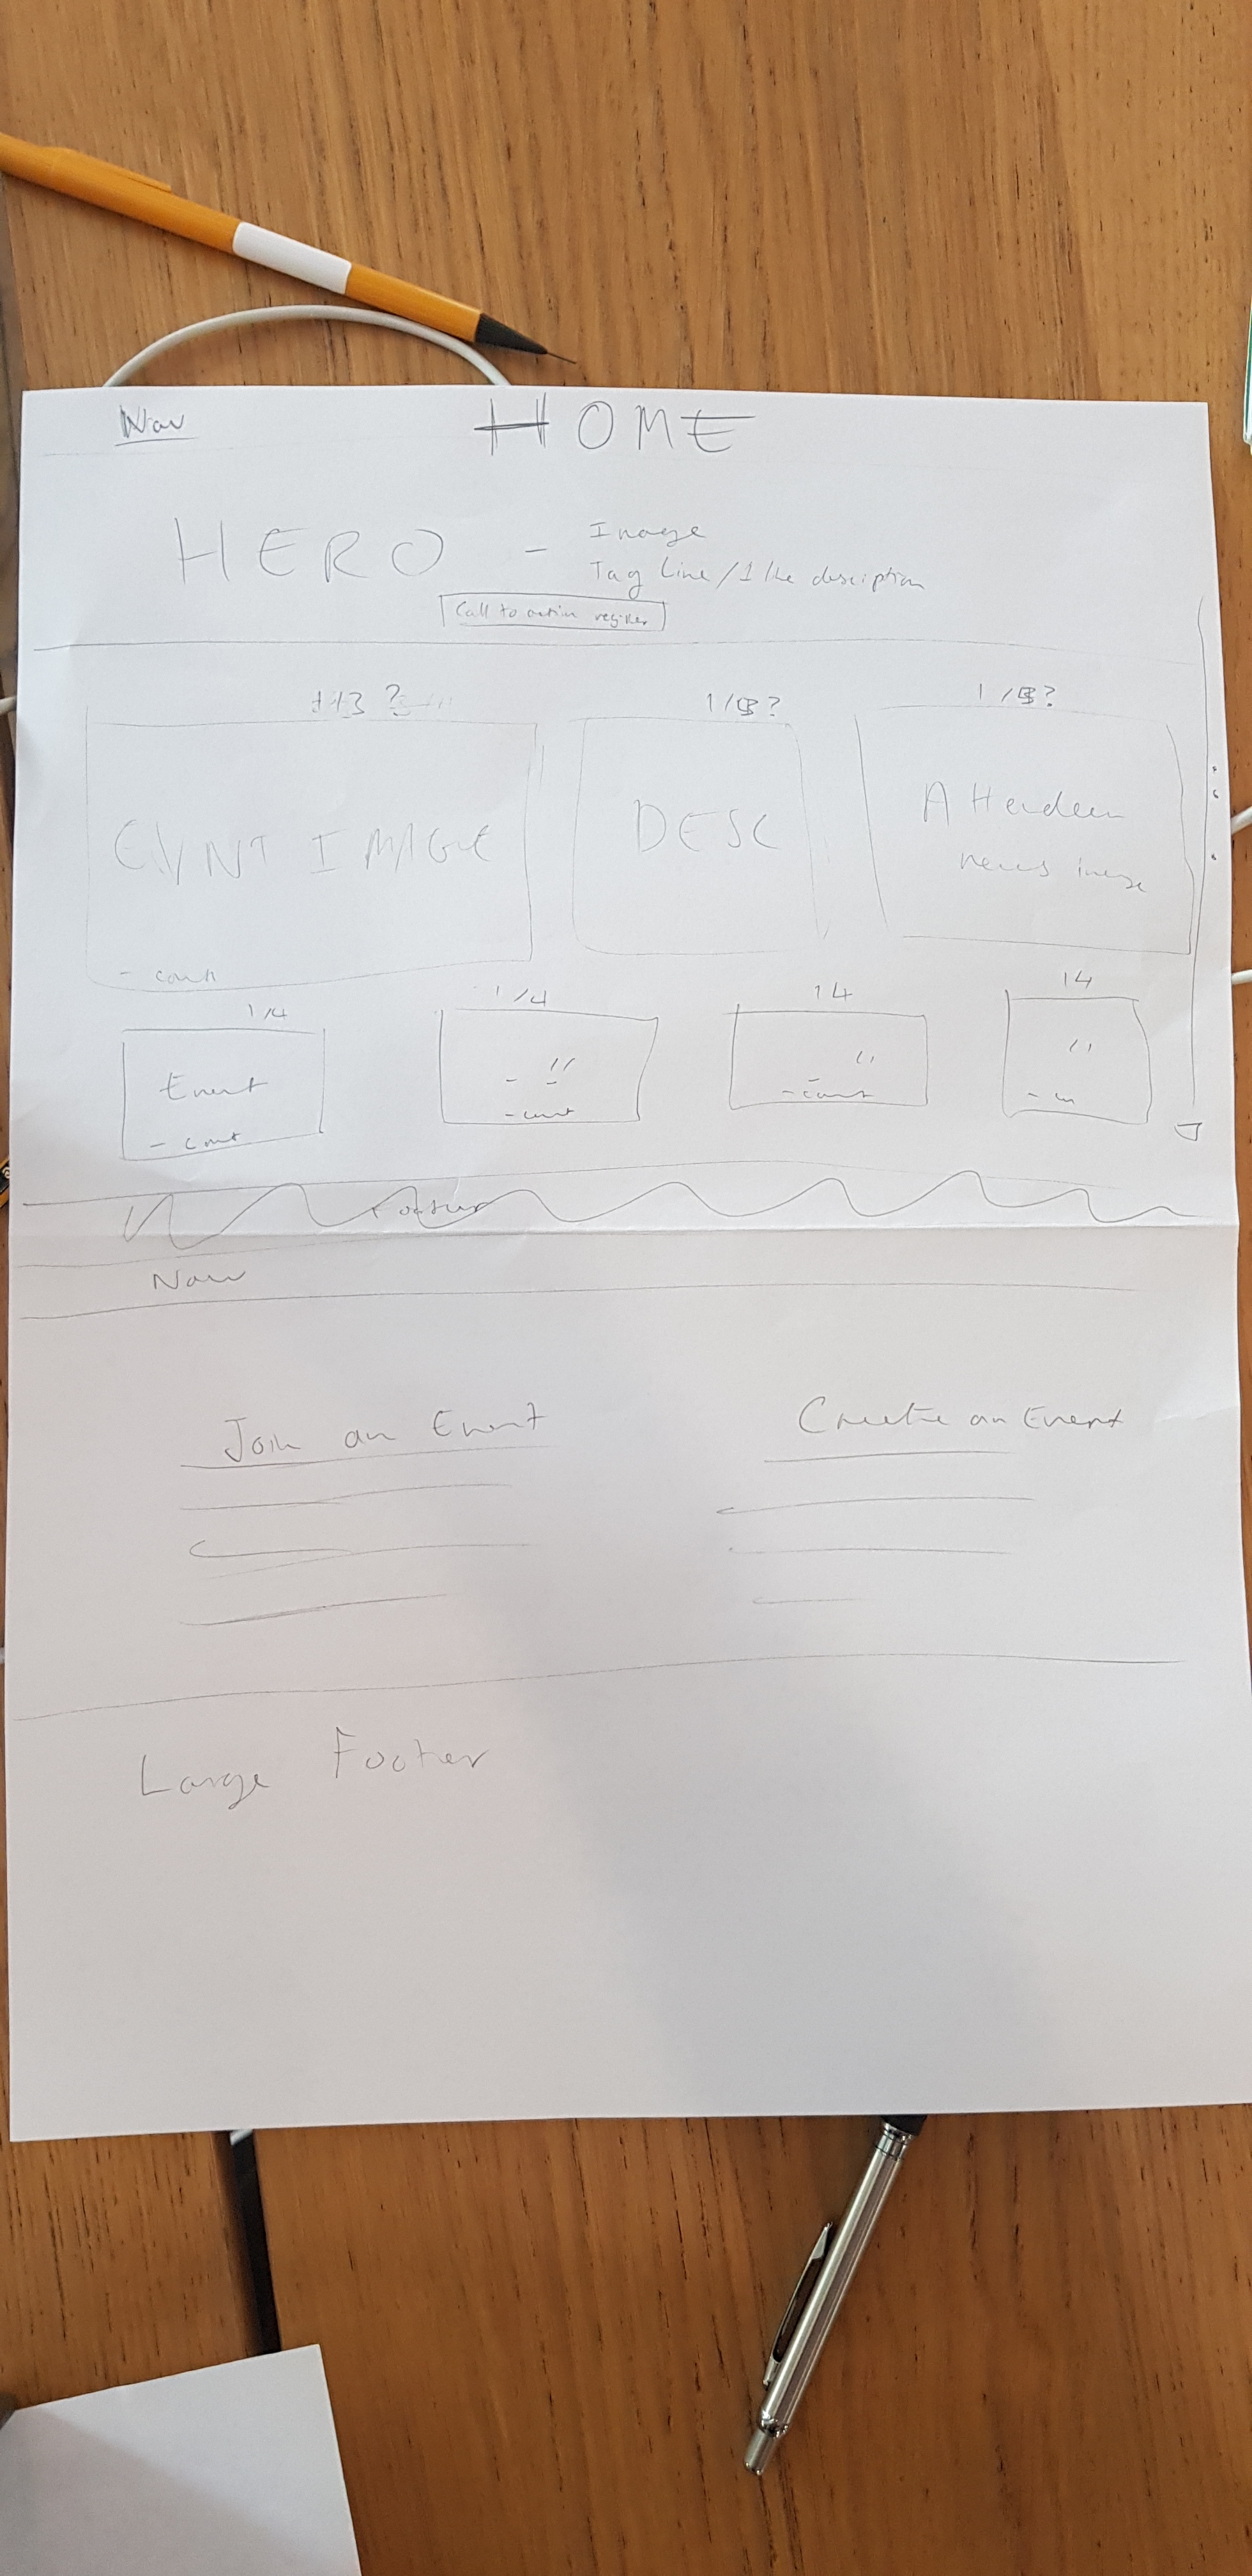 Nav
HOME
HERO - Image
Tag Line/1 line description
Call to action register
1/3?
1/3?
EVNT IMAGE
DESC
- count
1/4
1/4
14
14
Event
"
"
"
- count
- count
- count
Footer
Nav
Join an Event
Create an Event
Large Footer